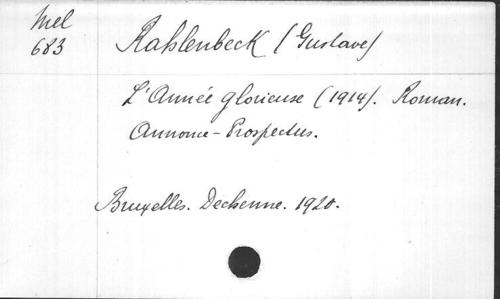 Mel
683
Rahlenbeck (Gustave)
L'Année glorieuse (1914). Roman.
Annonce-Prospectus.
Bruxelles. Dechenne. 1920.